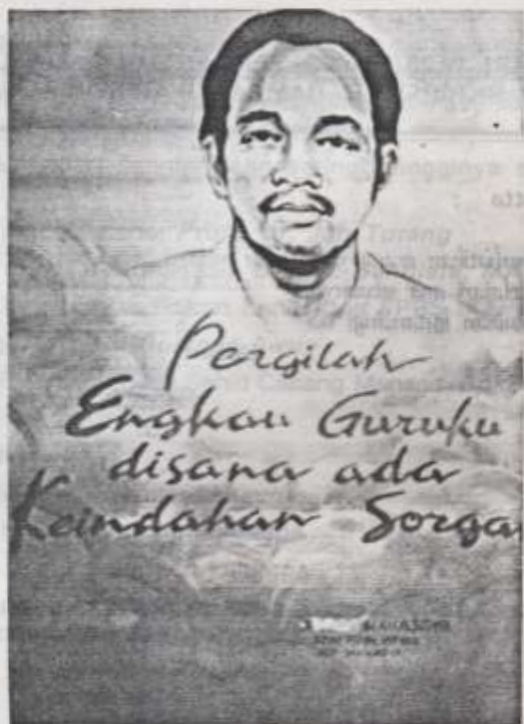 Pergilah
Engkau Guruku
disana ada
Keindahan Sorga